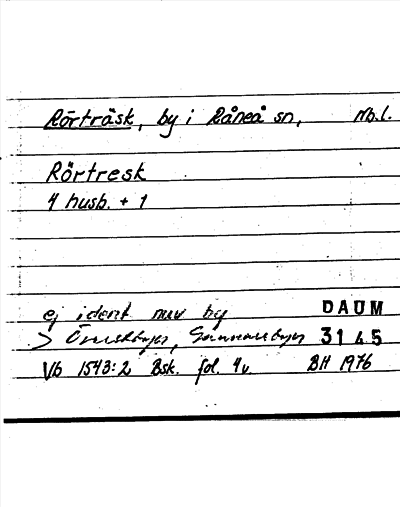 Rörträsk, by i Råneå sn, Nb.l.
Rörtresk
4 husb. + 1
ej ident. nuv by DAUM
> 3145
Vb 1543:2 Bsk. fol. 4v. BH 1976